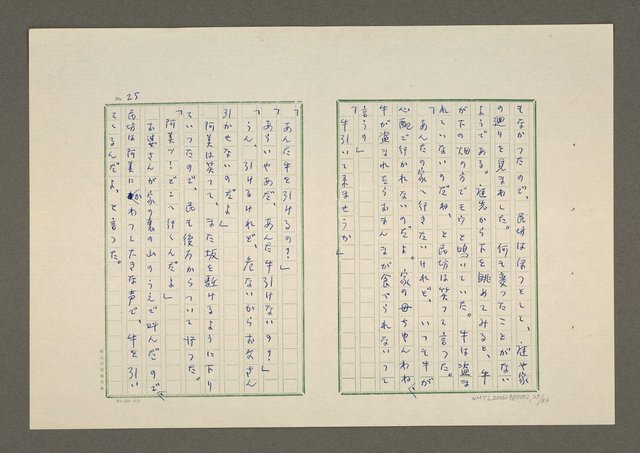 もなかつたので、民坊はほつとして、庭や家
の廻りを見まわした。何も変つたことがない
ようである。庭先から下を眺めてみると、牛
が下の畑の方でモウと鳴いていた。牛は盗ま
れていないのだね、と民坊は笑つて言つた。
「あんたの家へ行きたいけれど、いつも牛が
心配で行かれないのだよ。家の母ちやんわね
牛が盗まれたらおまんまが食べられないつて
言うの」
「牛引いて来ませうか」
No. 25
「あんた牛を引けるの？」
「あらいやあだ、あんた牛引けないの？」
「うん、引けるけれど、危ないからお父さん
引かせないのだよ」
阿美は笑つて、また坂を駈けるように下り
ていつたので、民も後方からついて行つた。
「阿美ッ！どこへ行くんだよ」
お婆さんが家の裏の山のうえで呼んだので
民坊は阿美にかわつて大きな声で、牛を引い
てくるんだよ。と言つた。
NMTL20061980002_25/83